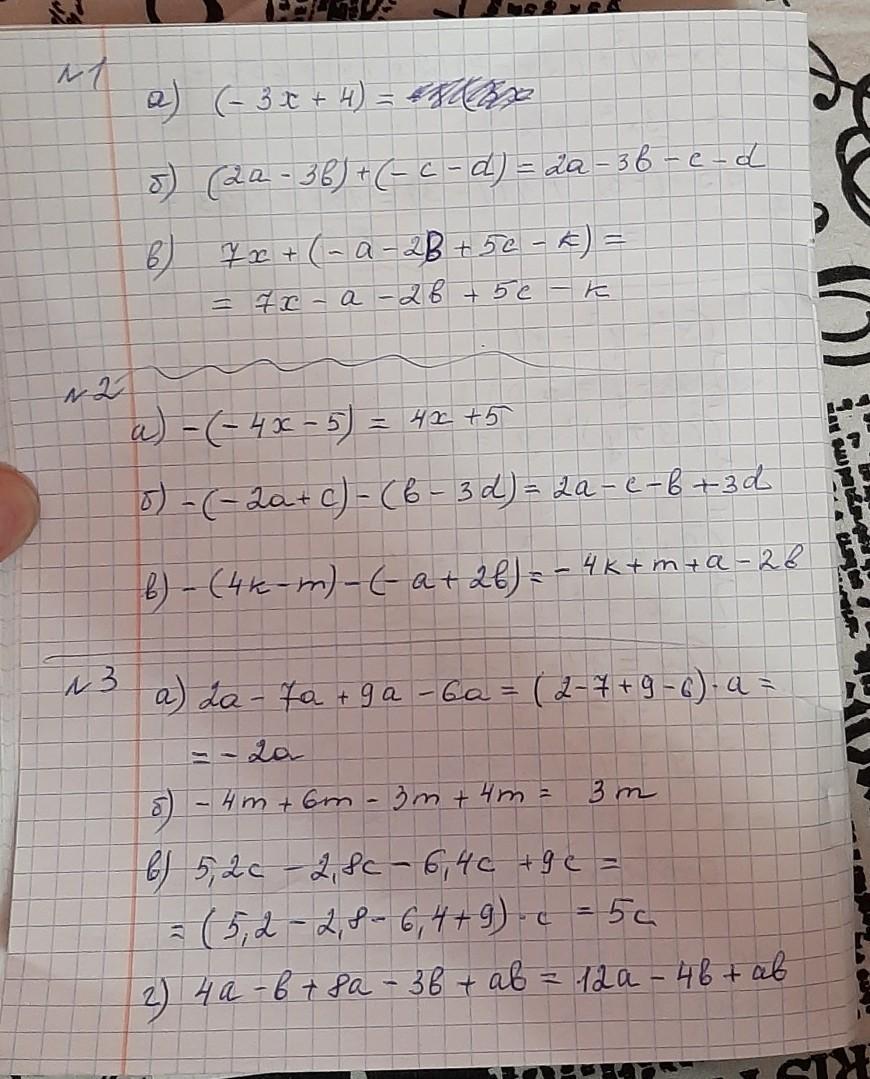 №1
а) (- 3x + 4) =
б) (2a - 3b) + (- c - d) = 2a - 3b - c - d
в) 7x + (- a - 2b + 5c - k) =
= 7x - a - 2b + 5c - k
№2
а) - (- 4x - 5) = 4x + 5
б) - (- 2a + c) - (b - 3d) = 2a - c - b + 3d
в) - (4k - m) - (- a + 2b) = - 4k + m + a - 2b
№3
а) 2a - 7a + 9a - 6a = (2 - 7 + 9 - 6) · a =
= - 2a
б) - 4m + 6m - 3m + 4m = 3m
в) 5,2c - 2,8c - 6,4c + 9c =
= (5,2 - 2,8 - 6,4 + 9) · c = 5c
г) 4a - b + 8a - 3b + ab = 12a - 4b + ab